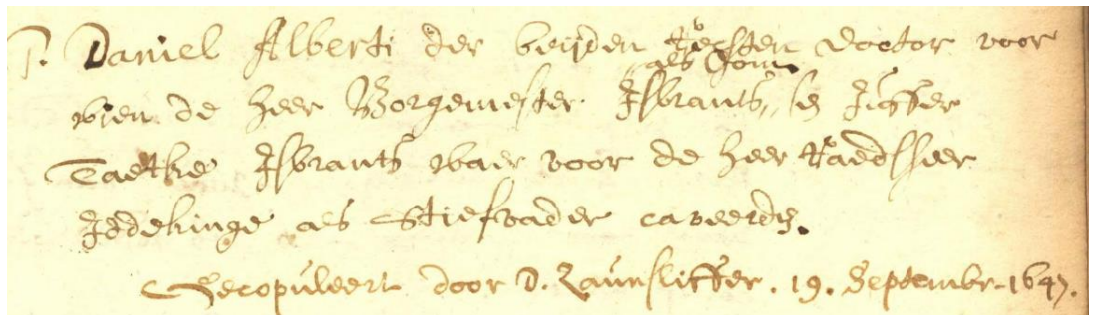 T. Daniel Alberti der beijden Rechten Doctor voor
als Oom
wien de heer Borgemester Isbrants, en Juffer
Taetke Isbrants waer voor de heer Raedsheer
Jddekinge als Stiefvader caveerde.
Gecopuleert door D. Laurslisser. 19. Septembr. 1647.